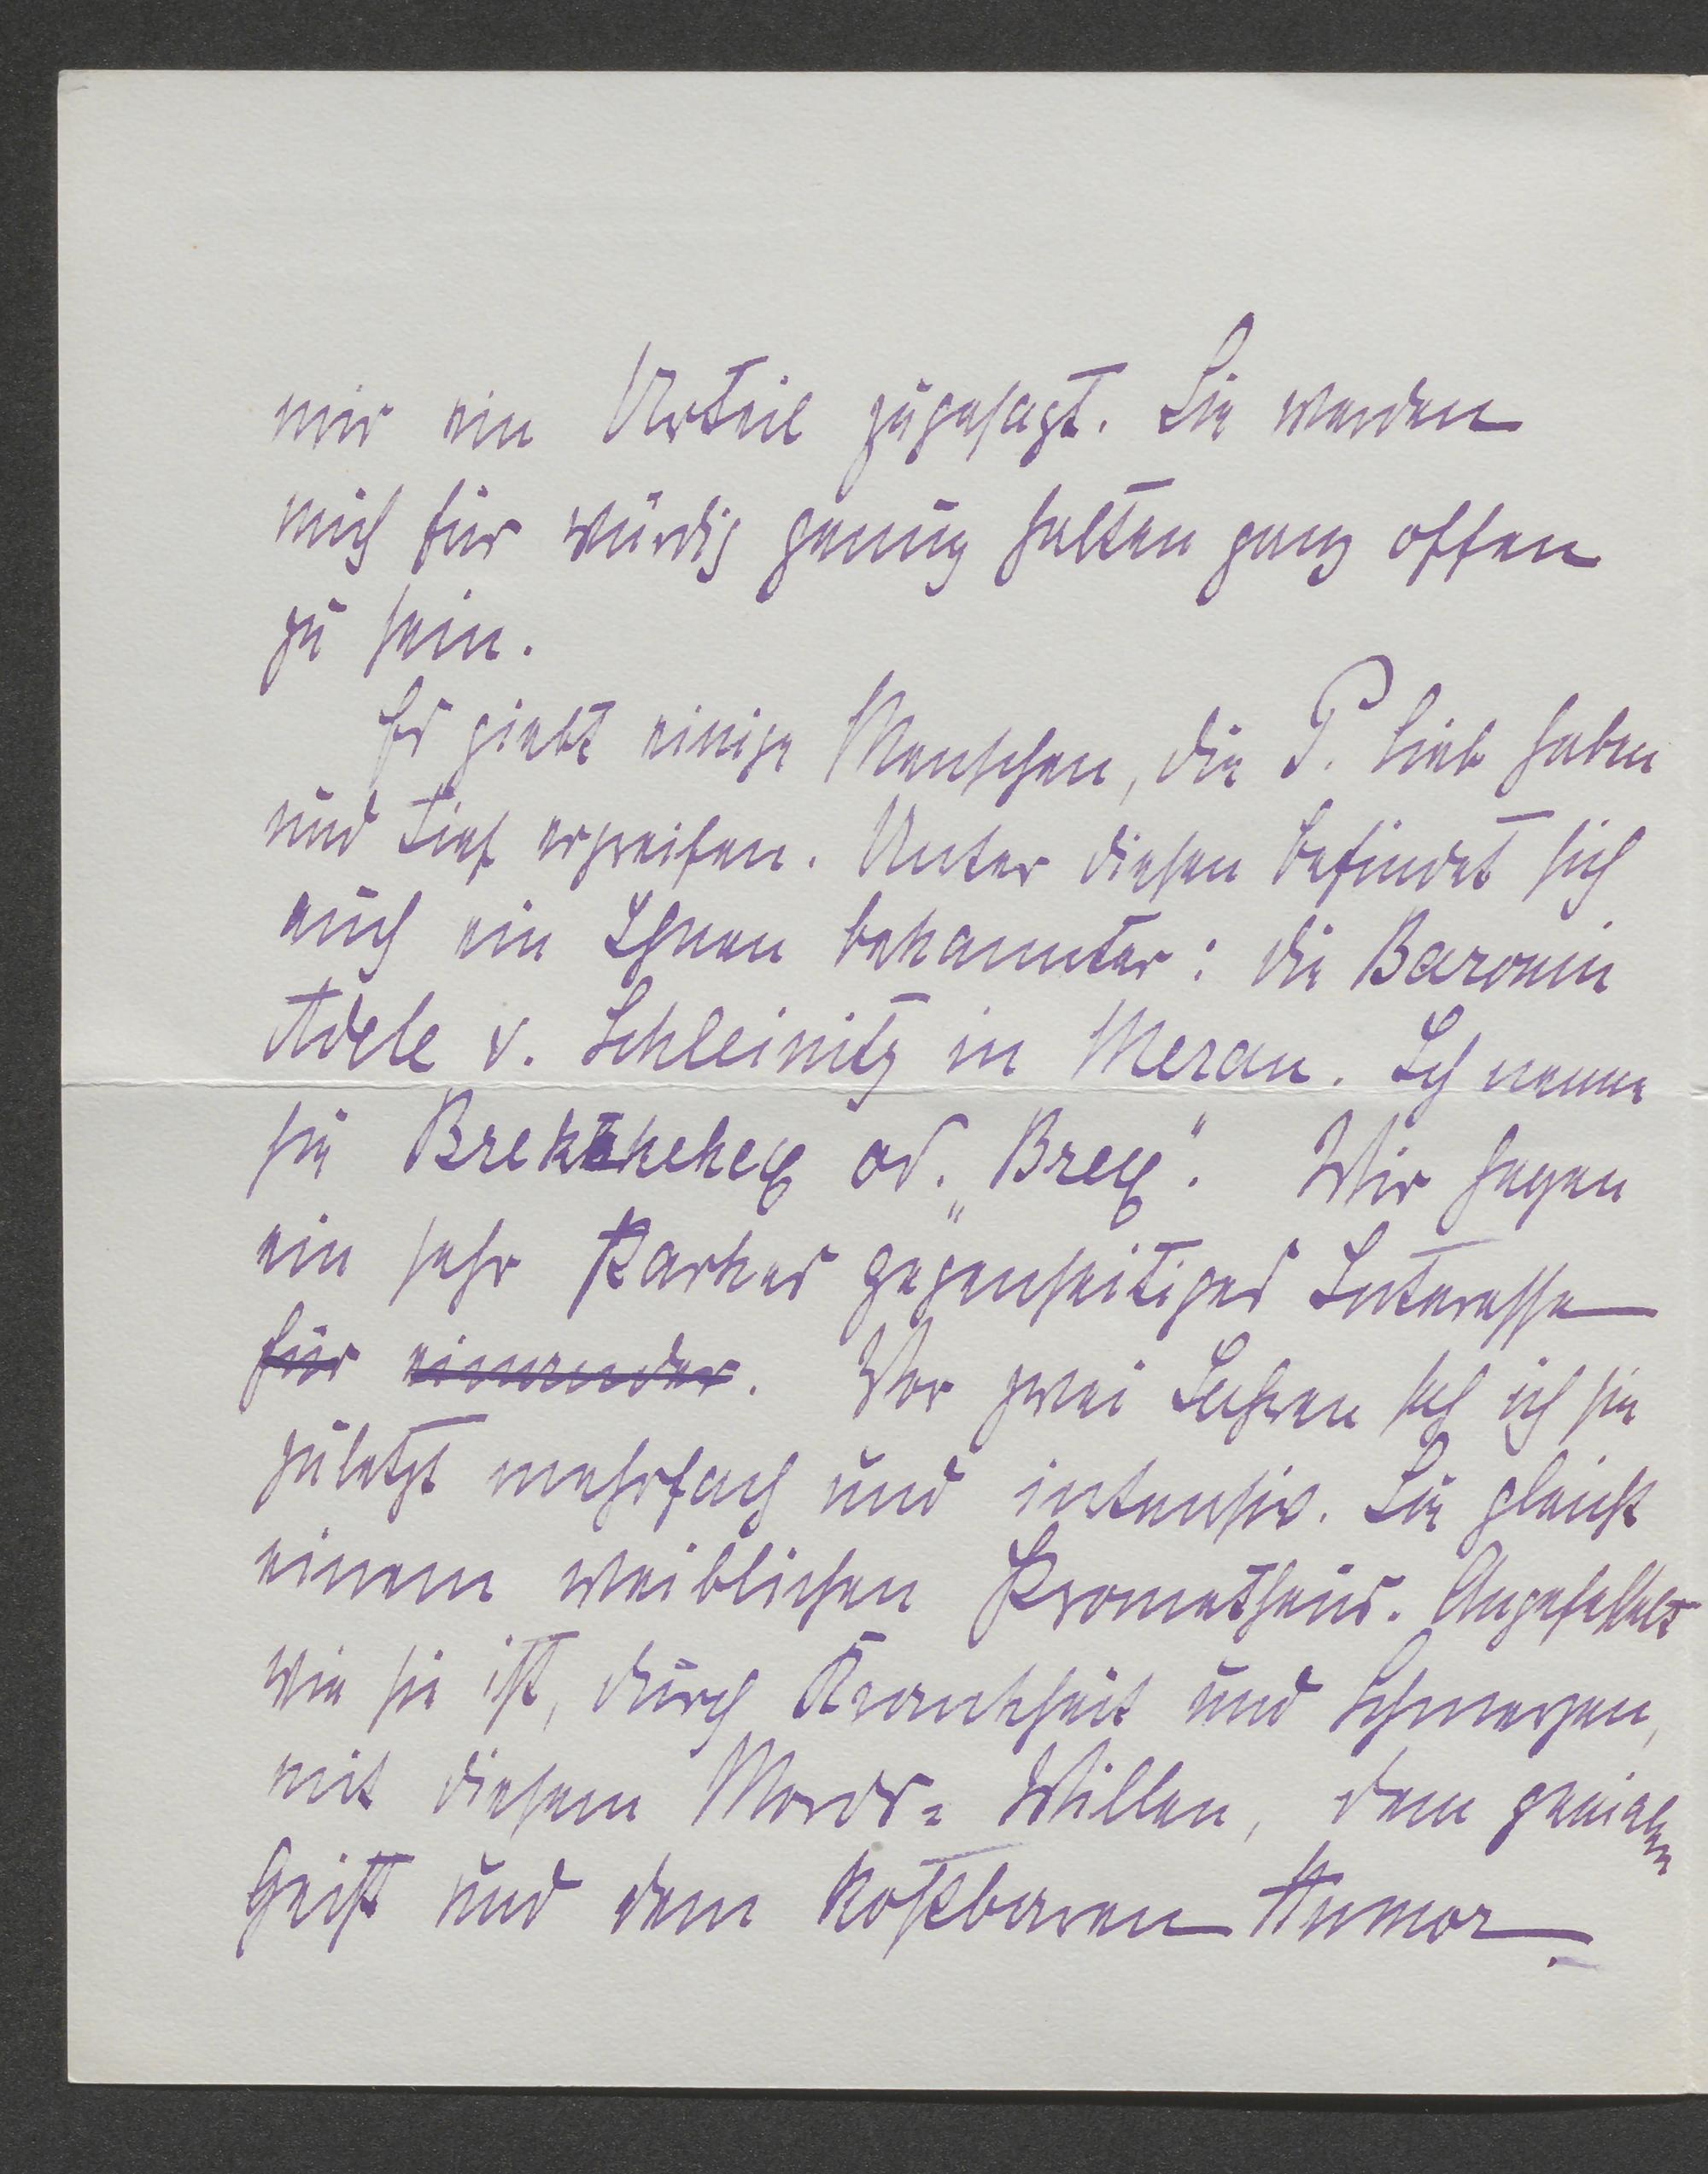 mir ein Urteil zugesagt. Sie werden
mich für würdig genug halten ganz offen
zu sein.
Es giebt einige Menschen, die P. lieb haben
und tief ergreifen. Unter diesen befindet sich
auch ein Ihnen bekannter: die Baronin
Adele v. Schleinitz in Meran. Ich nenne
sie Brekkekex od. „Brex". Wir hegen
ein sehr starkes gegenseitiges Interesse
für einander. Vor zwei Jahren sah ich sie
zuletzt mehrfach und intensiv. Sie gleicht
einem weiblichen Prometheus. Angefesselt
wie sie ist, durch Krankheit und Schmerzen,
mit diesem Mords-Willen, dem genialen
Geist und dem kostbaren Humor.